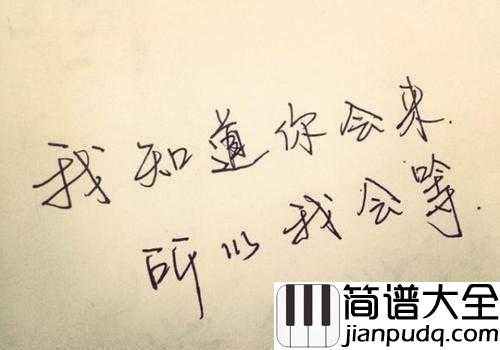 我知道你会来.
所以我会等.
简谱大全
jianpudq.com